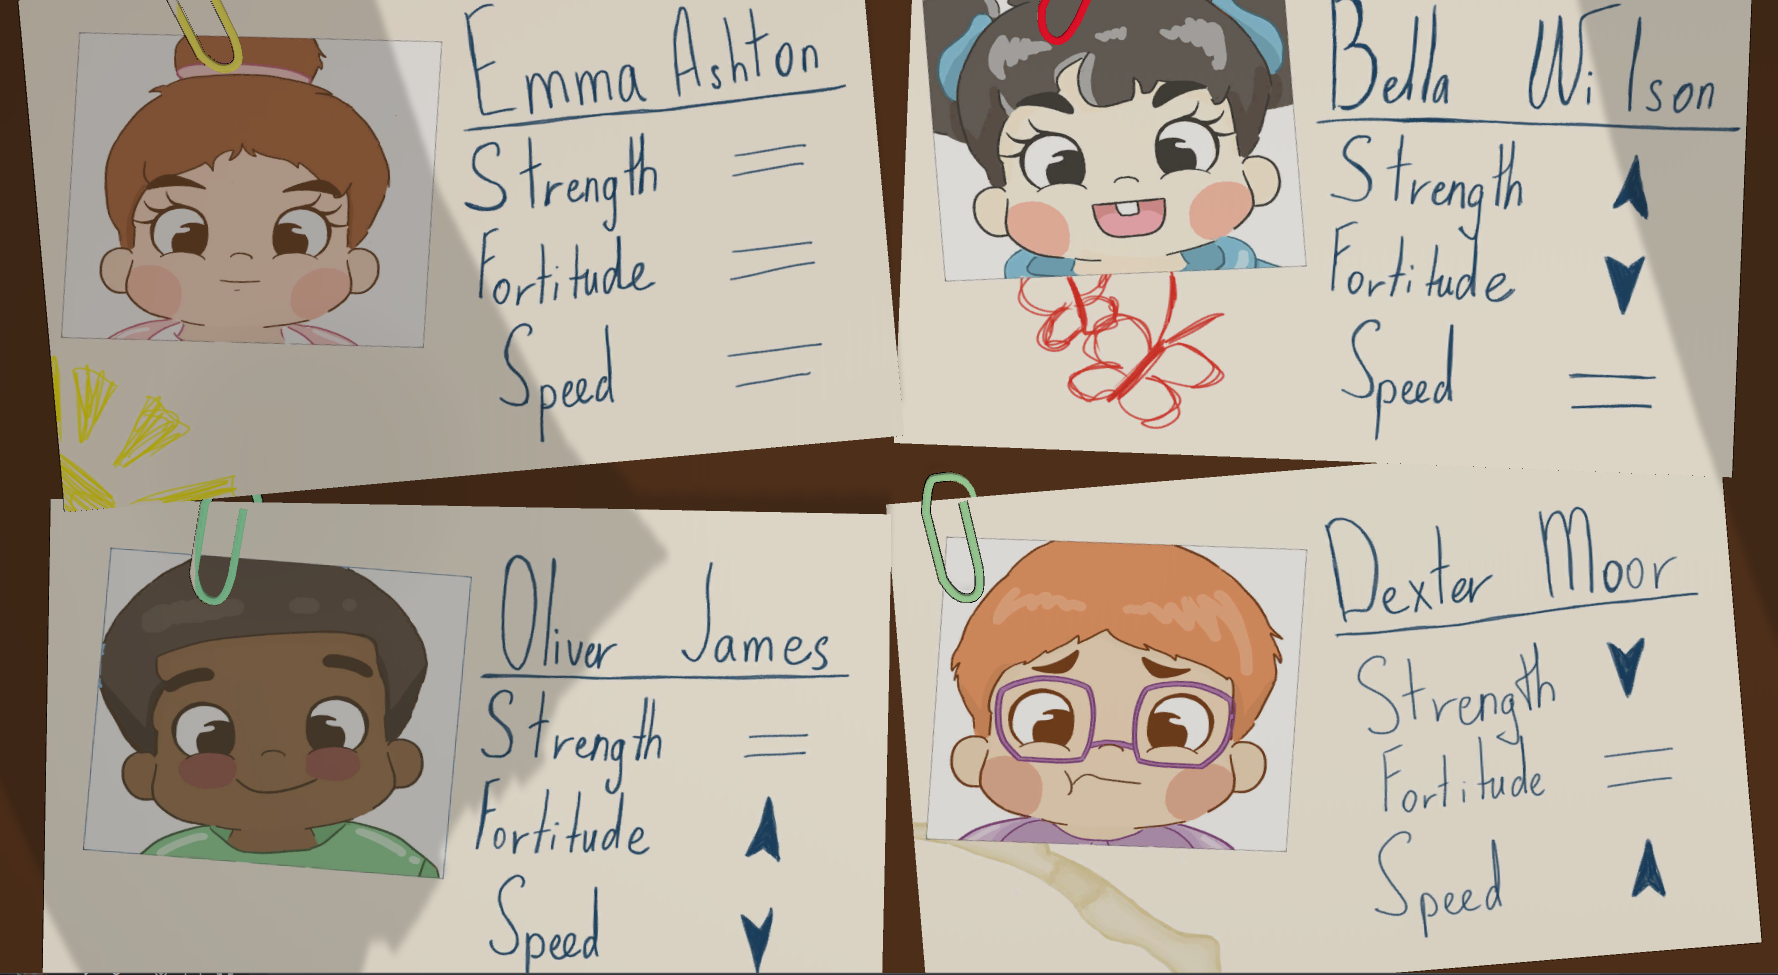 Emma Ashton
Strength =
Fortitude =
Speed =
Bella Wilson
Strength
Fortitude
Speed =
Oliver James
Strength =
Fortitude
Speed
Dexter Moor
Strength
Fortitude =
Speed